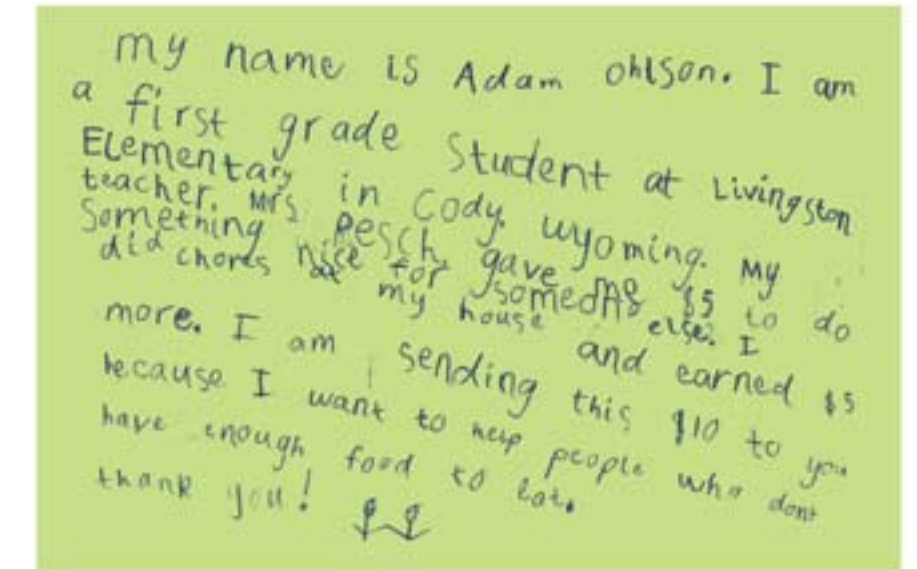 my name is Adam ohlson. I am
a first grade Student at Livingston
Elementary in Cody, wyoming. My
teacher, Mrs Pesch, gave $5 to do
Something nice for else. I
did chores at my house and earned $5
more. I am sending this $10 to you
because I want to help people who dont
have enough food to eat.
thank you!